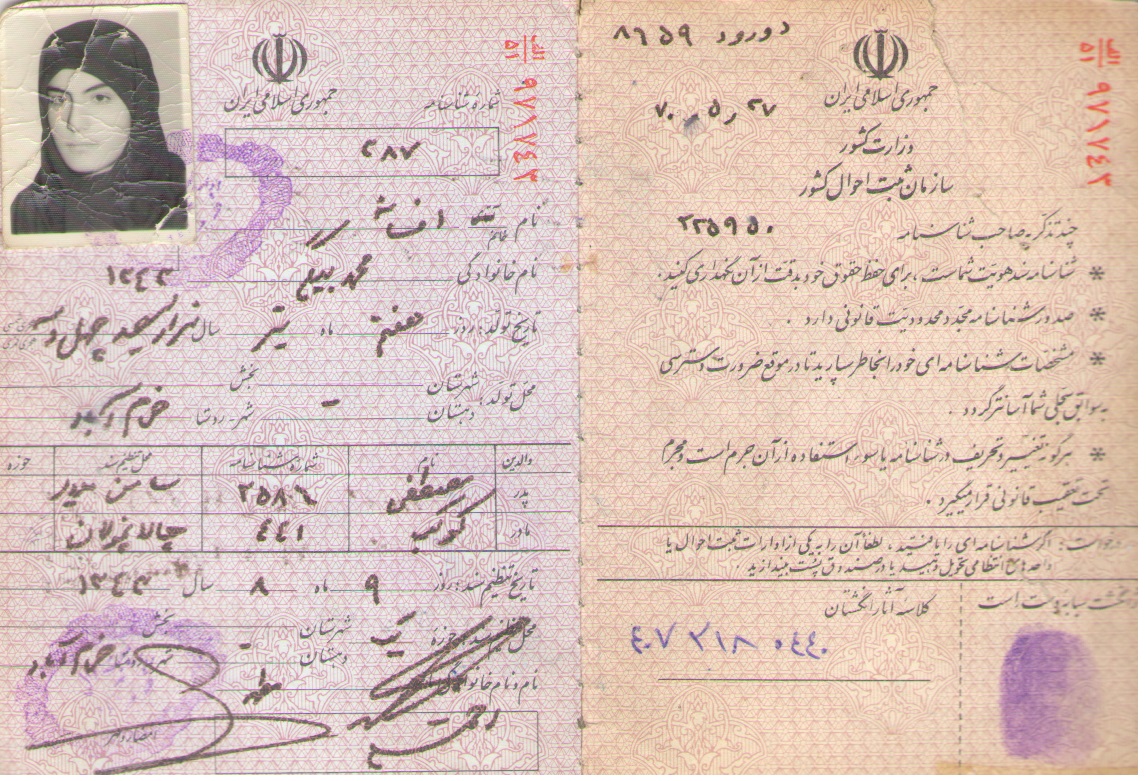 دورود ۸۶۵۹
جمهوری اسلامی ایران
۷۰ر۵ر۲۷
وزارت کشور
سازمان ثبت احوال کشور
۲۲۵۹۵۰
چند تذکر به صاحب شناسنامه
* شناسنامه سند هویت شماست، برای حفظ حقوق خود بدقت از آن نگهداری کنید.
* صدور شناسنامه مجدد محدودیت قانونی دارد.
* مشخصات شناسنامه ای خود را بخاطر بسپارید تا در موقع ضرورت دسترسی
به سوابق سجلی شما آسانتر گردد.
* هرگونه تغییر و تحریف در شناسنامه یا سوء استفاده از آن جرم است و مجرم
تحت تعقیب قانونی قرار میگیرد.
درخواست: اگر شناسنامه ای را یافتید، لطفاً آن را به یکی از ادارات ثبت احوال یا
واحدهای انتظامی تحویل دهید یا در صندوق پست بیندازید
کلاسه آثار انگشتان
انگشت سبابه دست راست
الف
۵۱
۹۷۱۷۴۳
جمهوری اسلامی ایران
شماره شناسنامه
۲۸۷
الف
۵۱
۹۷۱۷۴۳
نام خانم افسانه
نام خانوادگی محمد بیگی ۱۳۴۳
تاریخ تولد: روز هفتم ماه تیر سال هزار سیصد چهل و سه
محل تولد: شهرستان بخش
دهستان - شهر - روستا خرم آباد
والدین نام شماره شناسنامه محل تنظیم سند حوزه
پدر مصطفی ۲۵۸۶
مادر کوکب ۴۴۱ چالانچولان
تاریخ تنظیم سند: روز ۹ ماه ۸ سال ۱۳۴۳
حوزه یک شهرستان - بخش -
دهستان شهر - روستا خرم آباد
نام و نام خانوادگی
امضاء و مهر